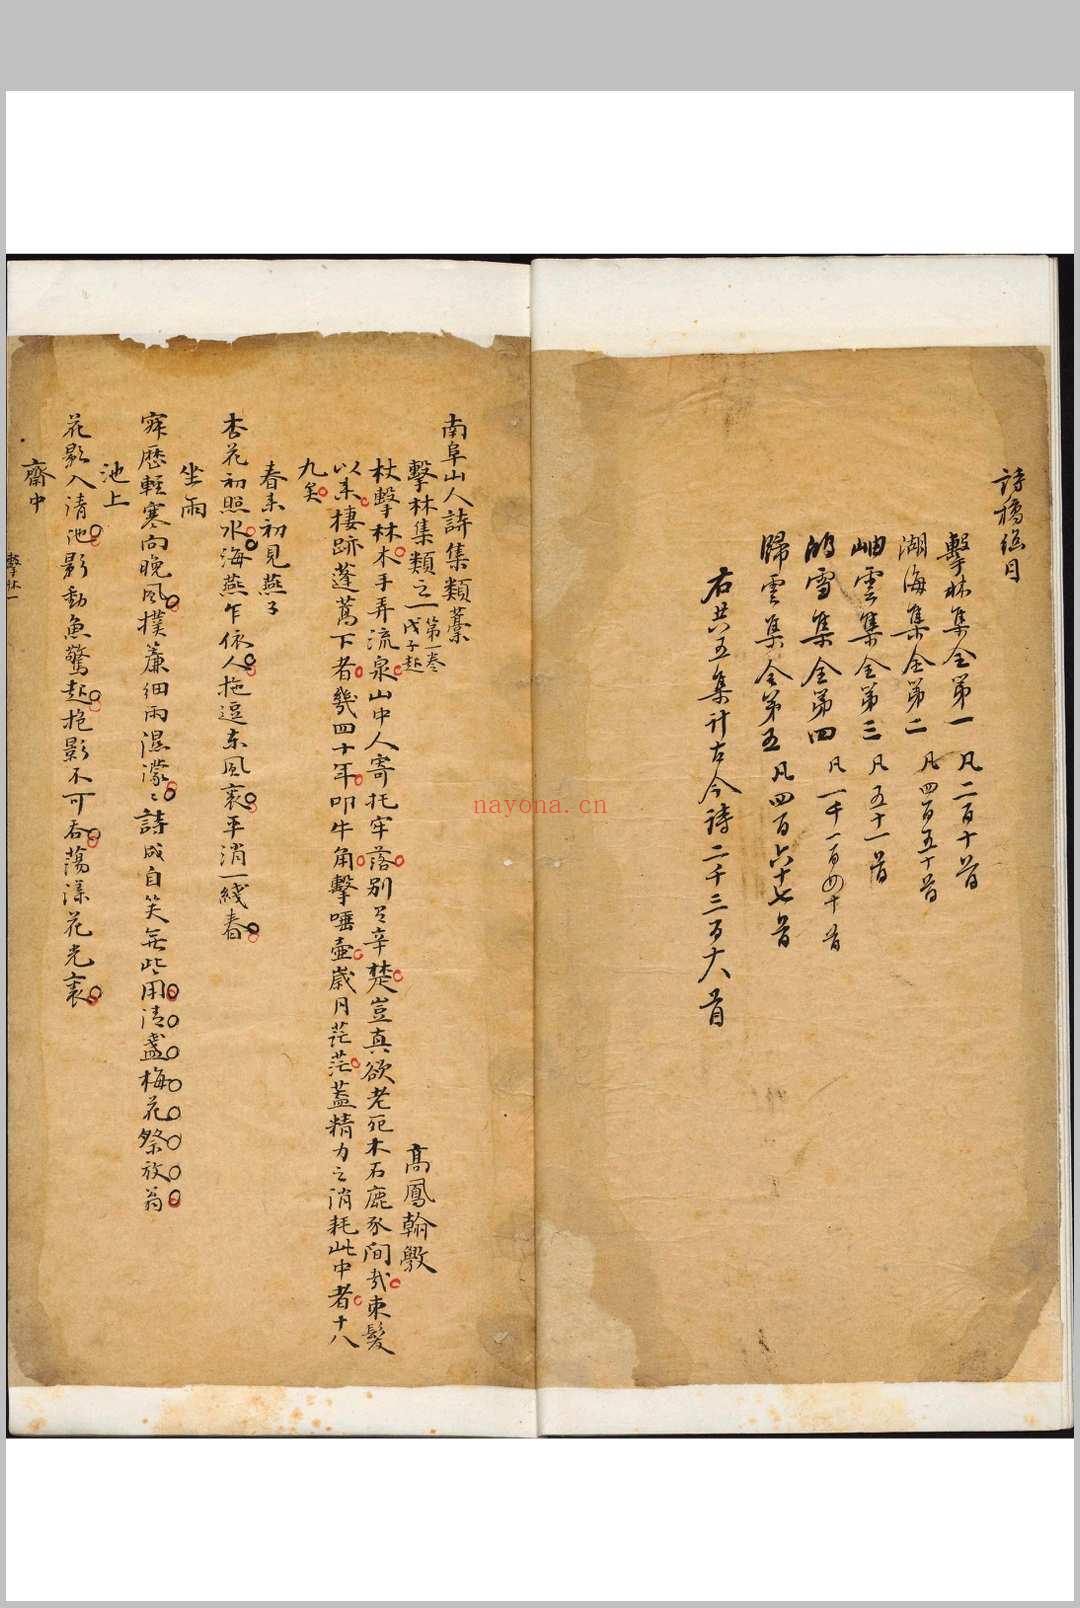 詩稿總目
擊林集全第一 凡二百十首
湖海集全第二 凡四百五十首
岫雲集全第三 凡五十一首
鴻雪集全第四 凡一千一百四十首
歸雲集全第五 凡四百六十七首
右共五集計古今詩二千三百十八首
南阜山人詩集類藁
擊林集類之一 第一卷 戊子起
高鳳翰
杖擊林木手弄流泉山中人寄托牢落別具辛楚豈真欲老死木石鹿豕間哉束髮
以來棲跡蓬蒿下者幾四十年叩牛角擊唾壺歲月茫茫葢精力之消耗此中者十八
九矣
春來初見燕子
杏花初照水海燕乍依人拖逗東風裏平消一綫春
坐雨
寂歷輕寒向晚風撲簾細雨濕濛濛詩成自笑無些用清盞梅花祭放翁
池上
花影入清池影動魚驚起抱影不可吞蕩漾花光裏
齋中
擊林一
nayona.cn